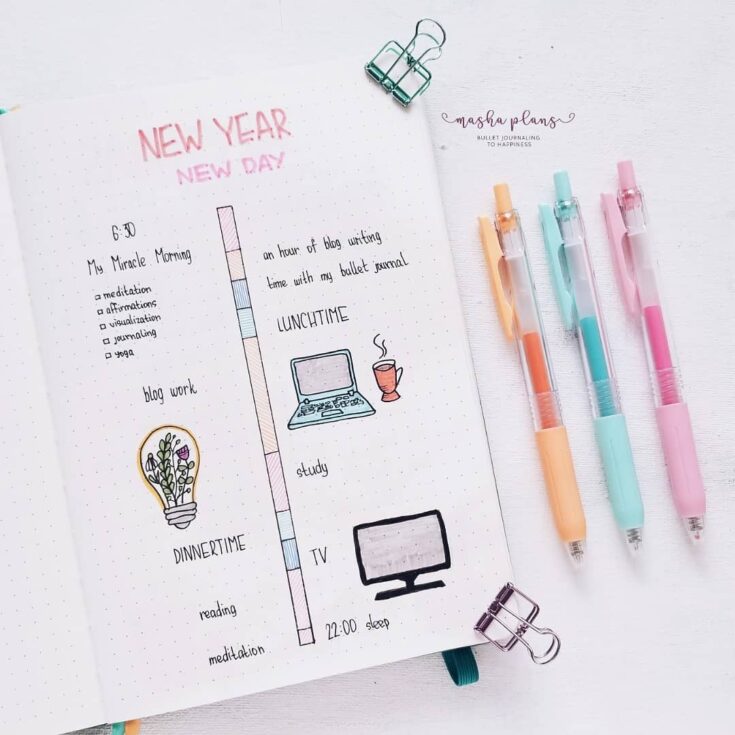 NEW YEAR
NEW DAY
masha plans
BULLET JOURNALING
TO HAPPINESS
6:30
My Miracle Morning
meditation
affirmations
visualization
journaling
yoga
an hour of blog writing
time with my bullet journal
LUNCHTIME
blog work
study
DINNERTIME
TV
reading
22:00 sleep
meditation